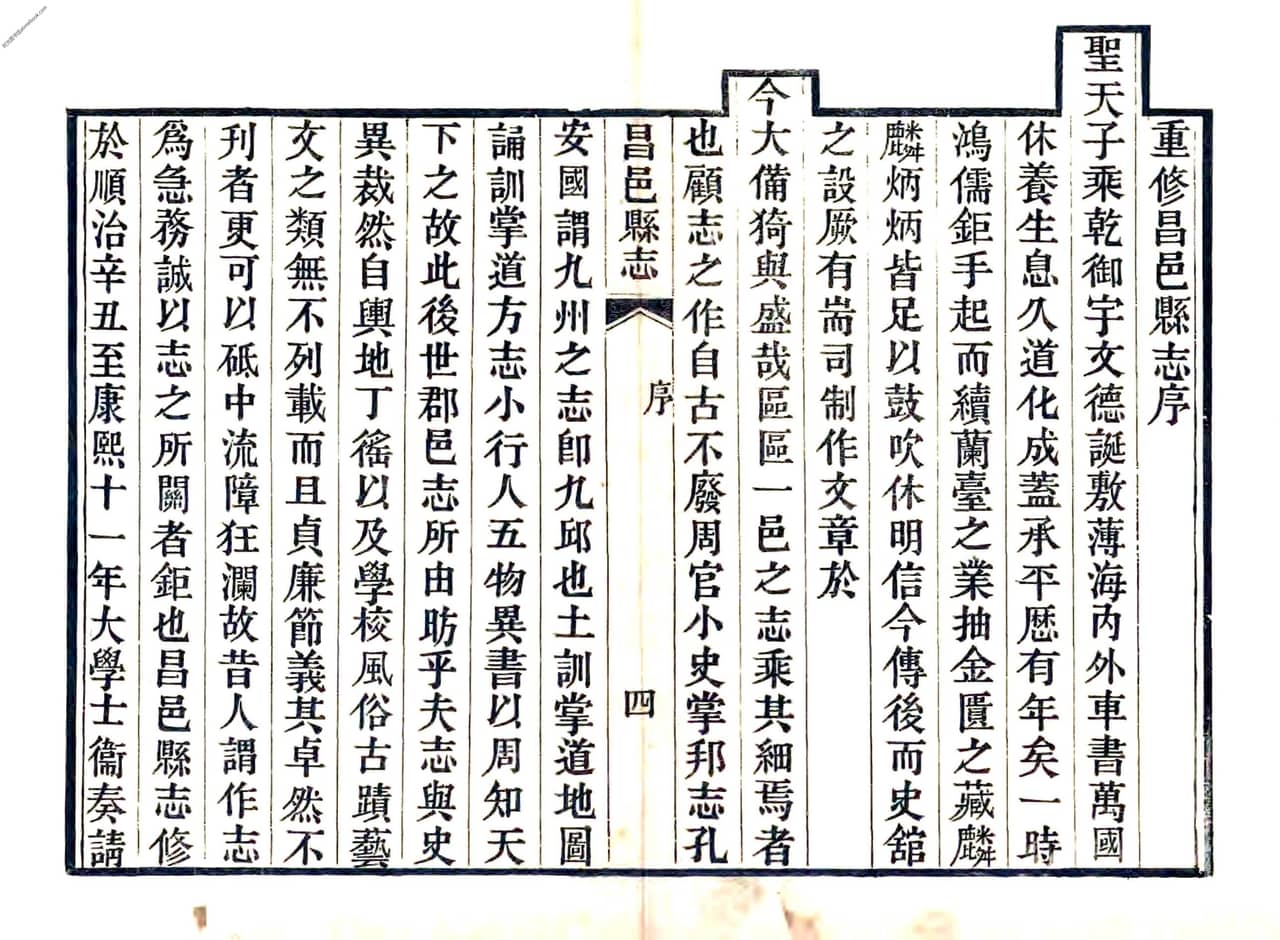 重修昌邑縣志序
聖天子乘乾御宇文德誕敷薄海內外車書萬國
休養生息久道化成蓋承平歷有年矣一時
鴻儒鉅手起而續蘭臺之業抽金匱之藏麟
麟炳炳皆足以鼓吹休明信今傳後而史舘
之設厥有耑司制作文章於
今大備猗與盛哉區區一邑之志乘其細焉者
也顧志之作自古不廢周官小史掌邦志孔
昌邑縣志
序
四
安國謂九州之志卽九邱也土訓掌道地圖
誦訓掌道方志小行人五物異書以周知天
下之故此後世郡邑志所由昉乎夫志與史
異裁然自輿地丁徭以及學校風俗古蹟藝
文之類無不列載而且貞廉節義其卓然不
刋者更可以砥中流障狂瀾故昔人謂作志
爲急務誠以志之所關者鉅也昌邑縣志修
於順治辛丑至康熙十一年大學士衞奏請